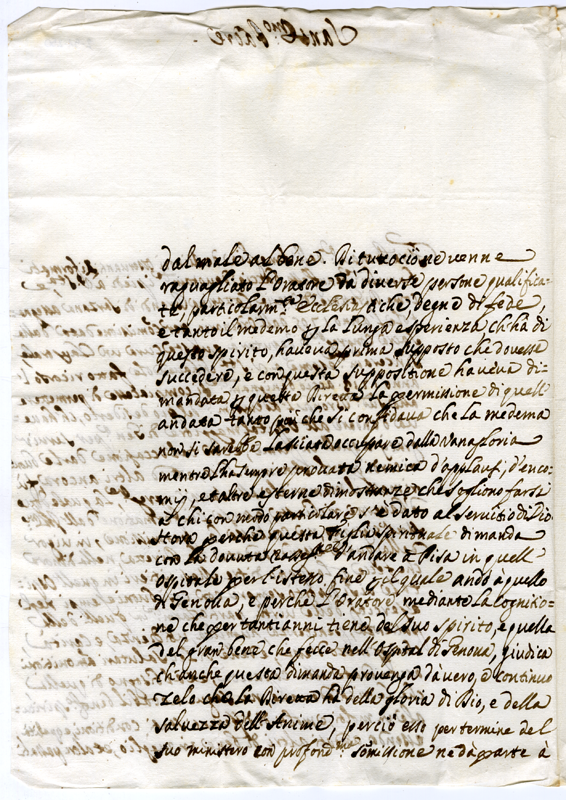 dal male al bene. Di tutto ciò ne venne
raguagliato l'Oratore da diverse persone qualifica-
te, particolarm.te Ecclesiastiche, degne di fede,
e tanto il medemo p la lunga esperienza ch'hà di
questo spirito, haveva prima supposto che dovesse
succedere, e con questa suppositione haveva di-
mandata p questa la permissione di quell'
andata tanto più che si confidava che la medema
non si sarebbe lasciata occupare dalla vanagloria
mentre l'hà sempre provata nemica d'aplausi, d'enco-
mij, e d'altre esterne dimostranze che sogliono farsi
à chi con modo particolare s'è dato al servitio di Dio
hora perche questa Figlia spirituale dimanda
con la dovuta d'andare à Pisa in quell'
Ospitale per l'istesso fine p il quale andò à quello
di Genova, e perche l'Oratore mediante la cognitio-
ne che per tanti anni tiene del suo spirito, e quella
del gran bene che fecce nell'Ospital di Genova, giudica
ch'anche questa dimanda provenga da vero, e continuo
zelo che la hà della gloria di Dio, e della
salvezza dell'Anime, perciò esso per termine del
suo ministero con profond.ma somissione ne dà parte à